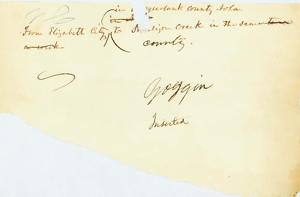 in Pasquotank county N.Ca.
From Elizabeth City to creek in the same
county.
Goggin
Inserted